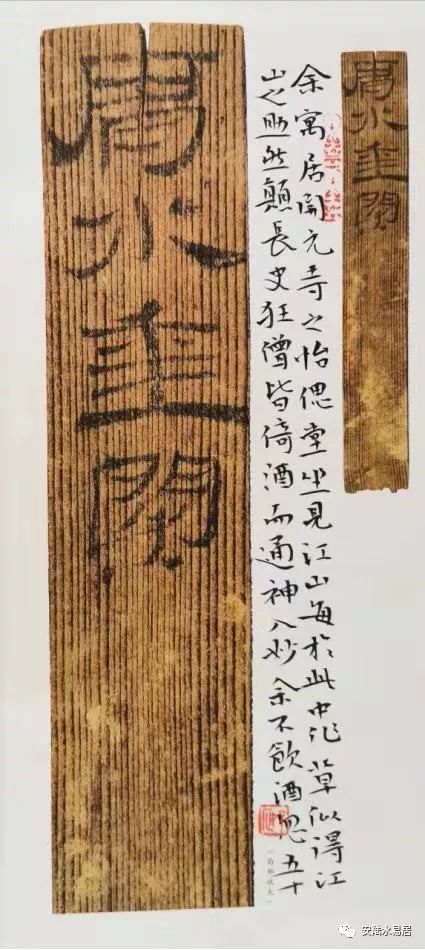 肩水金關
余寓居開元寺之怡偲堂坐見江山每於此中作草似得江
山之助然顛長史狂僧皆倚酒而通神入妙余不飲酒忽五十
肩水金關
(局部放大)
安陆水易居